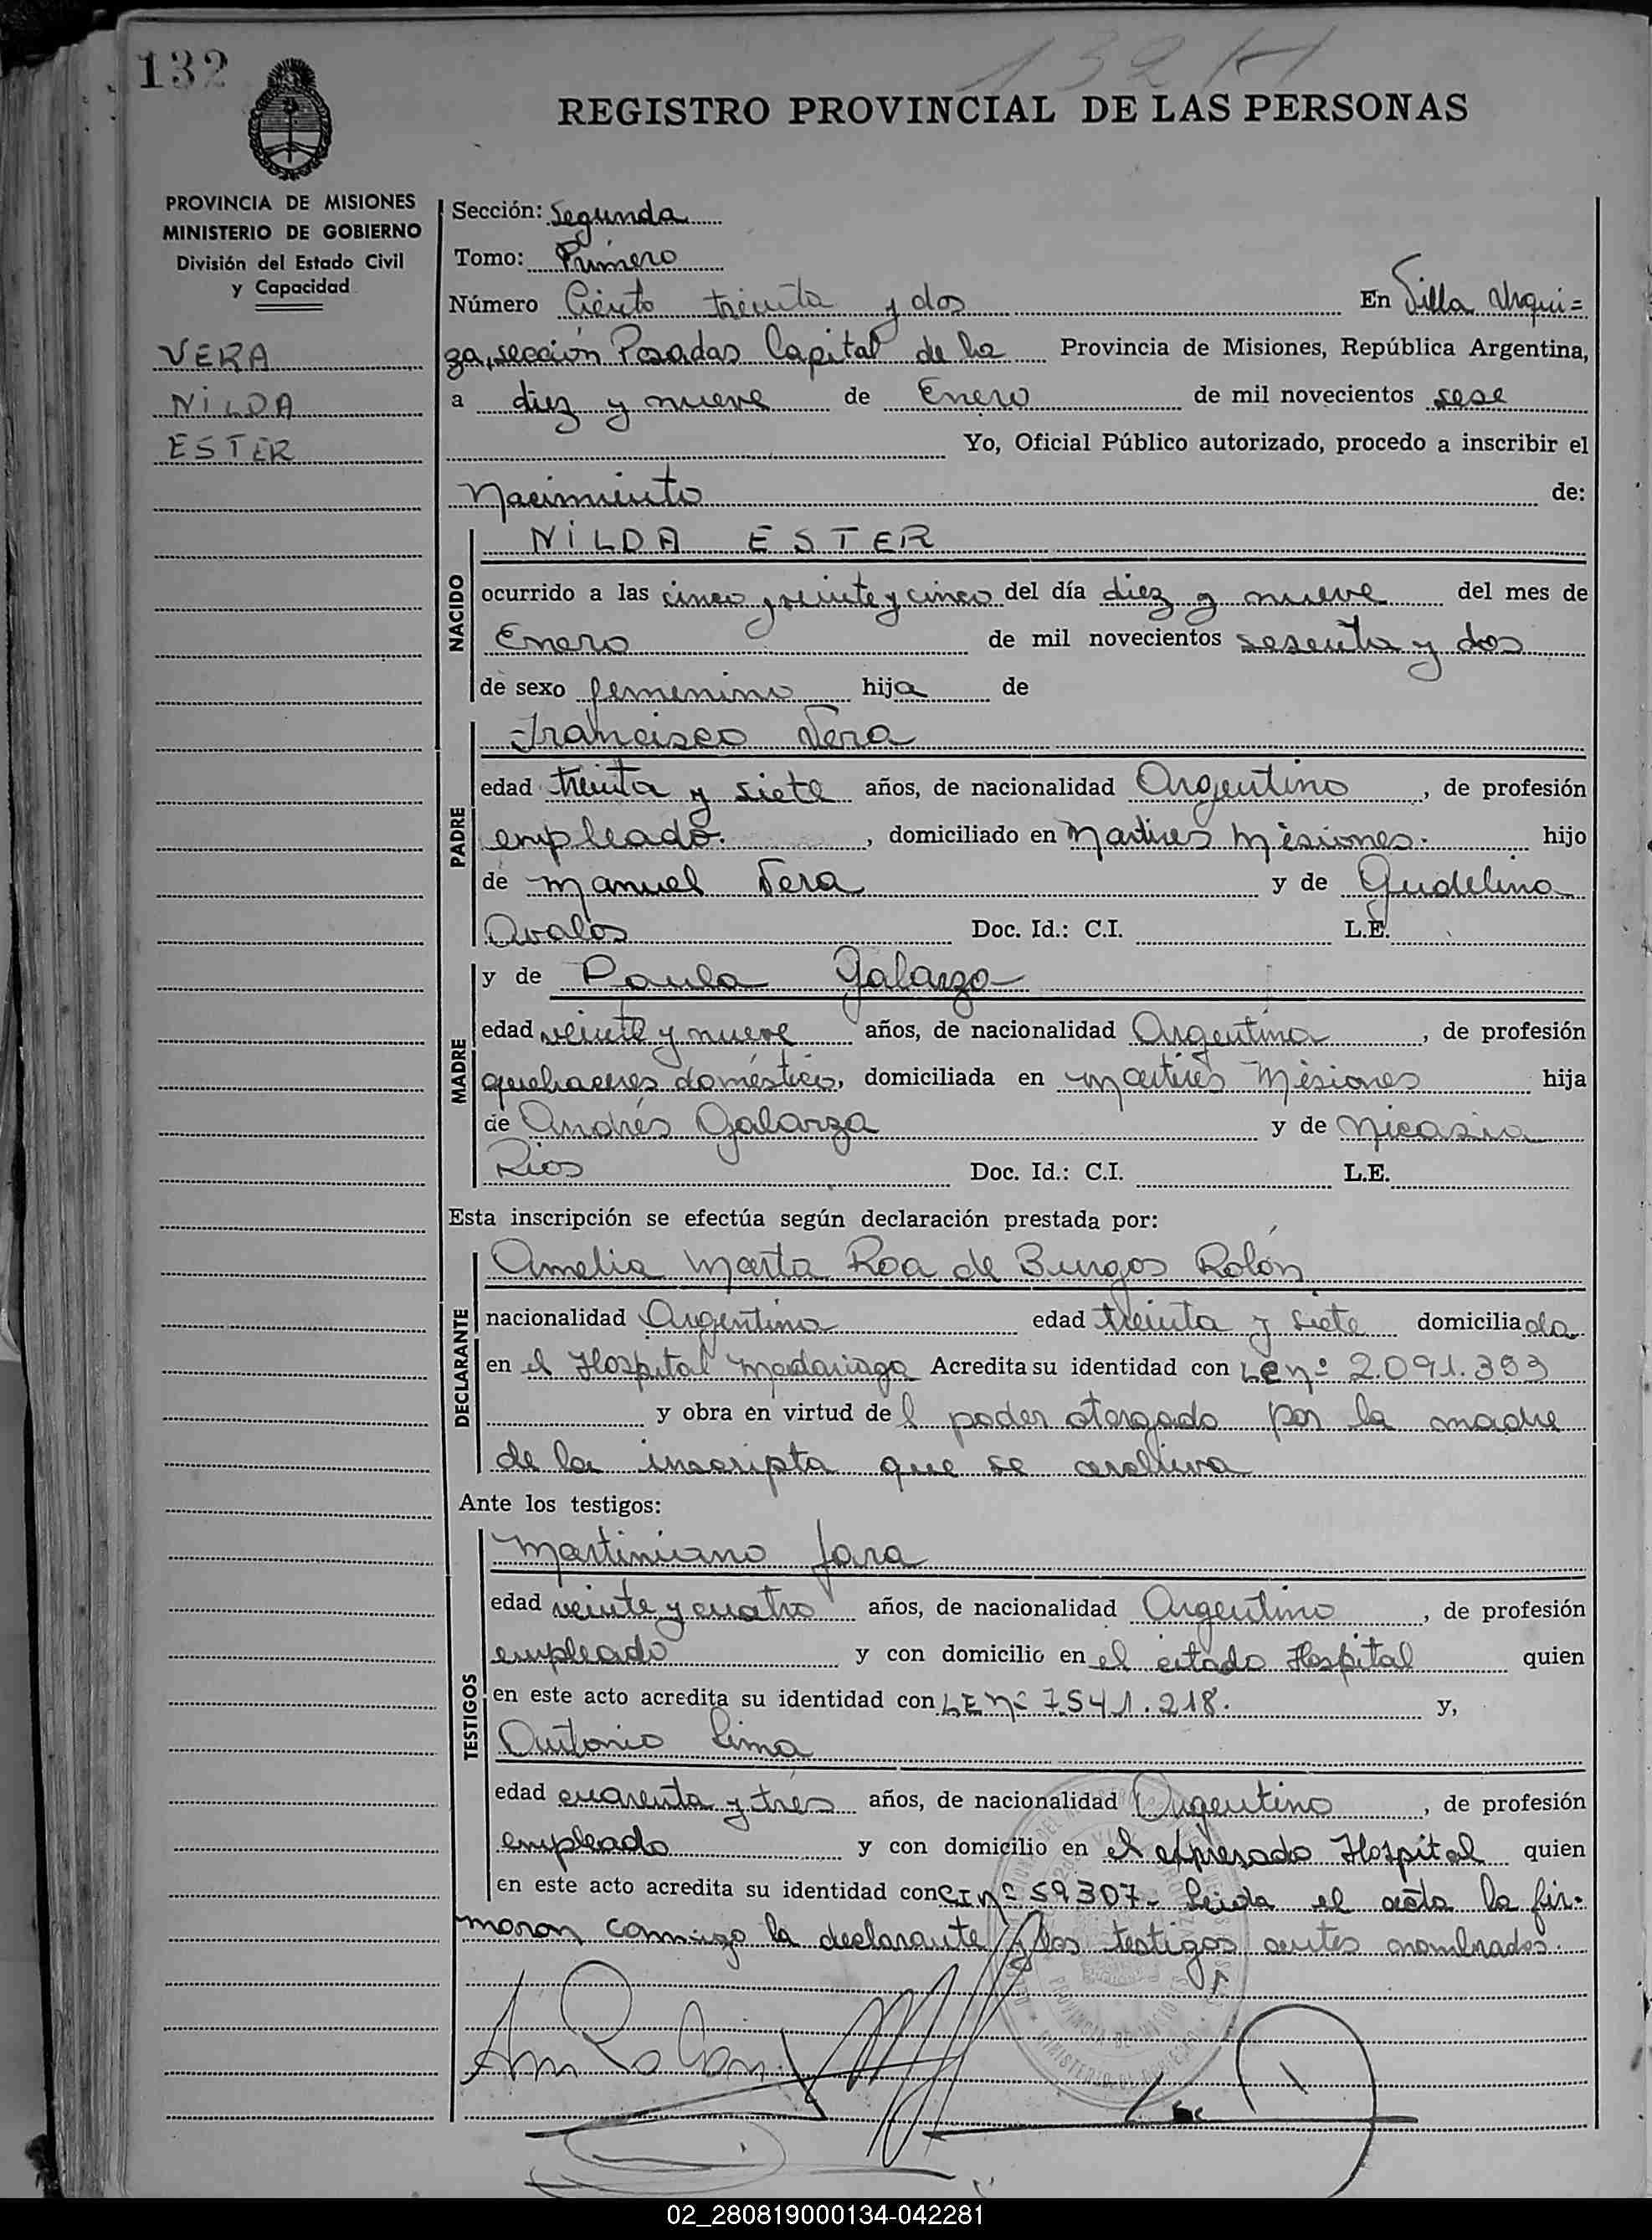 132
132 H
REGISTRO PROVINCIAL DE LAS PERSONAS
PROVINCIA DE MISIONES
MINISTERIO DE GOBIERNO
División del Estado Civil
y Capacidad
VERA
NILDA
ESTER
Sección: Segunda
Tomo: Primero
Número Ciento treinta y dos En Villa Urqui=
za, sección Posadas Capital de la Provincia de Misiones, República Argentina,
a diez y nueve de Enero de mil novecientos sese
Yo, Oficial Público autorizado, procedo a inscribir el
Nacimiento de:
NACIDO
NILDA ESTER
ocurrido a las cinco y veinte y cinco del día diez y nueve del mes de
Enero de mil novecientos sesenta y dos
de sexo femenino hija de
PADRE
Francisco Vera
edad treinta y siete años, de nacionalidad Argentino, de profesión
empleado. , domiciliado en Martires Misiones. hijo
de Manuel Vera y de Gudelina
Avalos Doc. Id.: C.I. L.E.
MADRE
y de Paula Galarza
edad veinte y nueve años, de nacionalidad Argentina, de profesión
quehaceres domésticos, domiciliada en Martires Misiones hija
de Andrés Galarza y de Nicasia
Rios Doc. Id.: C.I. L.E.
Esta inscripción se efectúa según declaración prestada por:
DECLARANTE
Amelia Marta Roa de Burgos Rolón
nacionalidad Argentina edad treinta y siete domiciliada
en el Hospital Madariaga Acredita su identidad con Le nº 2.091.393
y obra en virtud del poder otorgado por la madre
de la inscripta que se archiva
Ante los testigos:
TESTIGOS
Martiniano Jara
edad veinte y cuatro años, de nacionalidad Argentino, de profesión
empleado y con domicilio en el citado Hospital quien
en este acto acredita su identidad con LE nº 7.541.218. y,
Antonio Lima
edad cuarenta y tres años, de nacionalidad Argentino, de profesión
empleado y con domicilio en el expresado Hospital quien
en este acto acredita su identidad con CI nº 59307- Leida el acta la fir-
maron conmigo la declarante y los testigos antes nombrados.
02_280819000134-042281